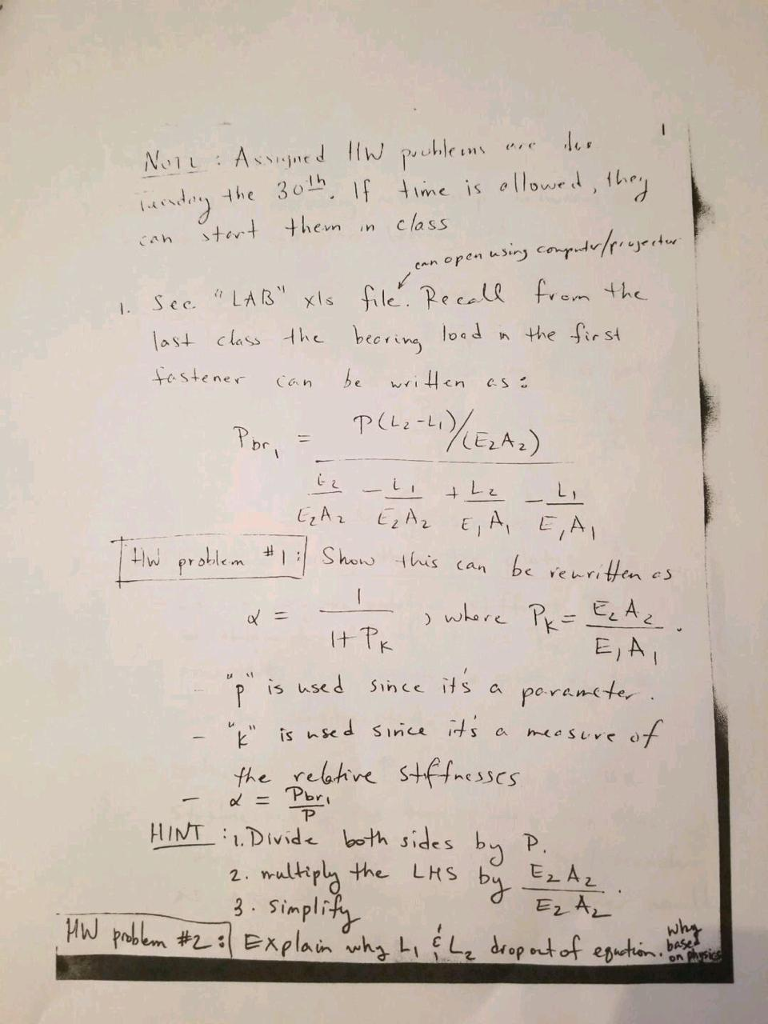 1
NOTE : Assigned HW problems are due
tuesday the 30th. If time is allowed, they
can start them in class
can open using computer/projector
1. See "LAB" xls file. Recall from the
last class the bearing load in the first
fastener can be written as:
Pbr1 = P(L2-L1)/(E2A2)
L2/E2A2 - L1/E2A2 + L2/E1A1 - L1/E1A1
HW problem #1: Show this can be rewritten as
α = 1/(1+PK) , where PK = E2A2/E1A1.
- "p" is used since it's a parameter.
- "k" is used since it's a measure of
the relative stiffnesses
- α = Pbr1/P
HINT : 1. Divide both sides by P.
2. multiply the LHS by E2A2/E2A2.
3. simplify
HW problem #2: Explain why L1 & L2 drop out of equation. why based on physics